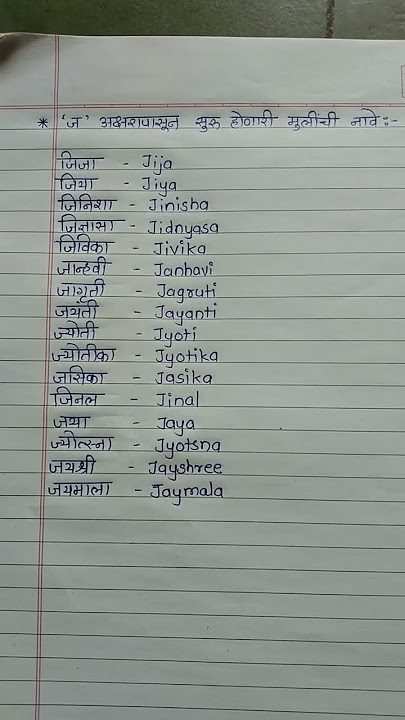 * 'ज' अक्षरापासून सुरु होणारी मुलींची नावे :-
जिजा - Jija
जिया - Jiya
जिनिशा - Jinisha
जिज्ञासा - Jidnyasa
जिविका - Jivika
जान्हवी - Janhavi
जागृती - Jagruti
जयंती - Jayanti
ज्योती - Jyoti
ज्योतीका - Jyotika
जासिका - Jasika
जिनल - Jinal
जया - Jaya
ज्योत्स्ना - Jyotsna
जयश्री - Jayshree
जयमाला - Jaymala